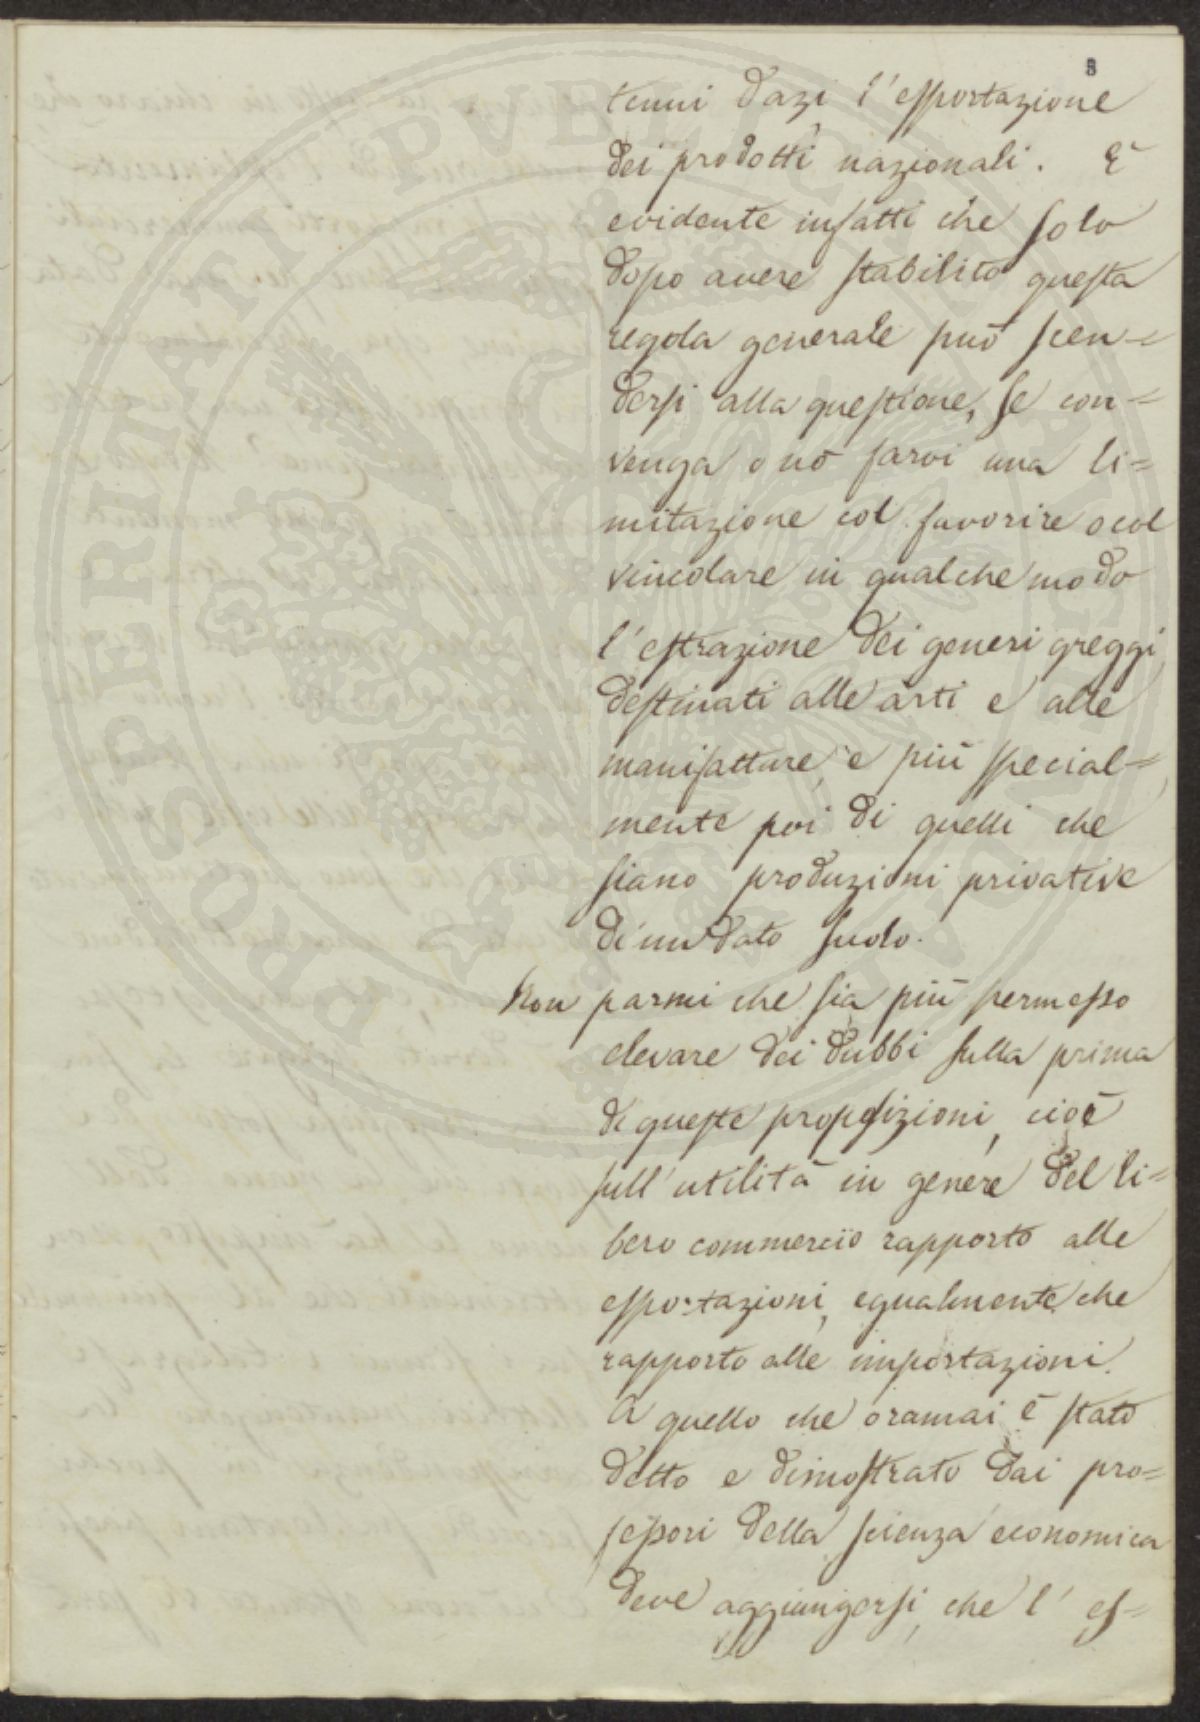 3
tenui dazj l'esportazione
dei prodotti nazionali. È
evidente infatti che solo
dopo avere stabilito questa
regola generale può scen=
dersi alla questione, se con=
venga o nò farvi una li=
mitazione col favorire o col
vincolare in qualche modo
l'estrazione dei generi greggi
destinati alle arti e alle
manifatture, e più special=
mente poi di quelli che
siano produzioni privative
di un dato suolo.
Non parmi che sia più permesso
elevare dei dubbi sulla prima
di queste proposizioni, cioè
sull'utilità in genere del li=
bero commercio rapporto alle
esportazioni, egualmente che
rapporto alle importazioni.
A quello che oramai è stato
detto e dimostrato dai pro=
fessori della scienza economica
deve aggiungersi, che l'es=
PROSPERITATI PVBLICAE